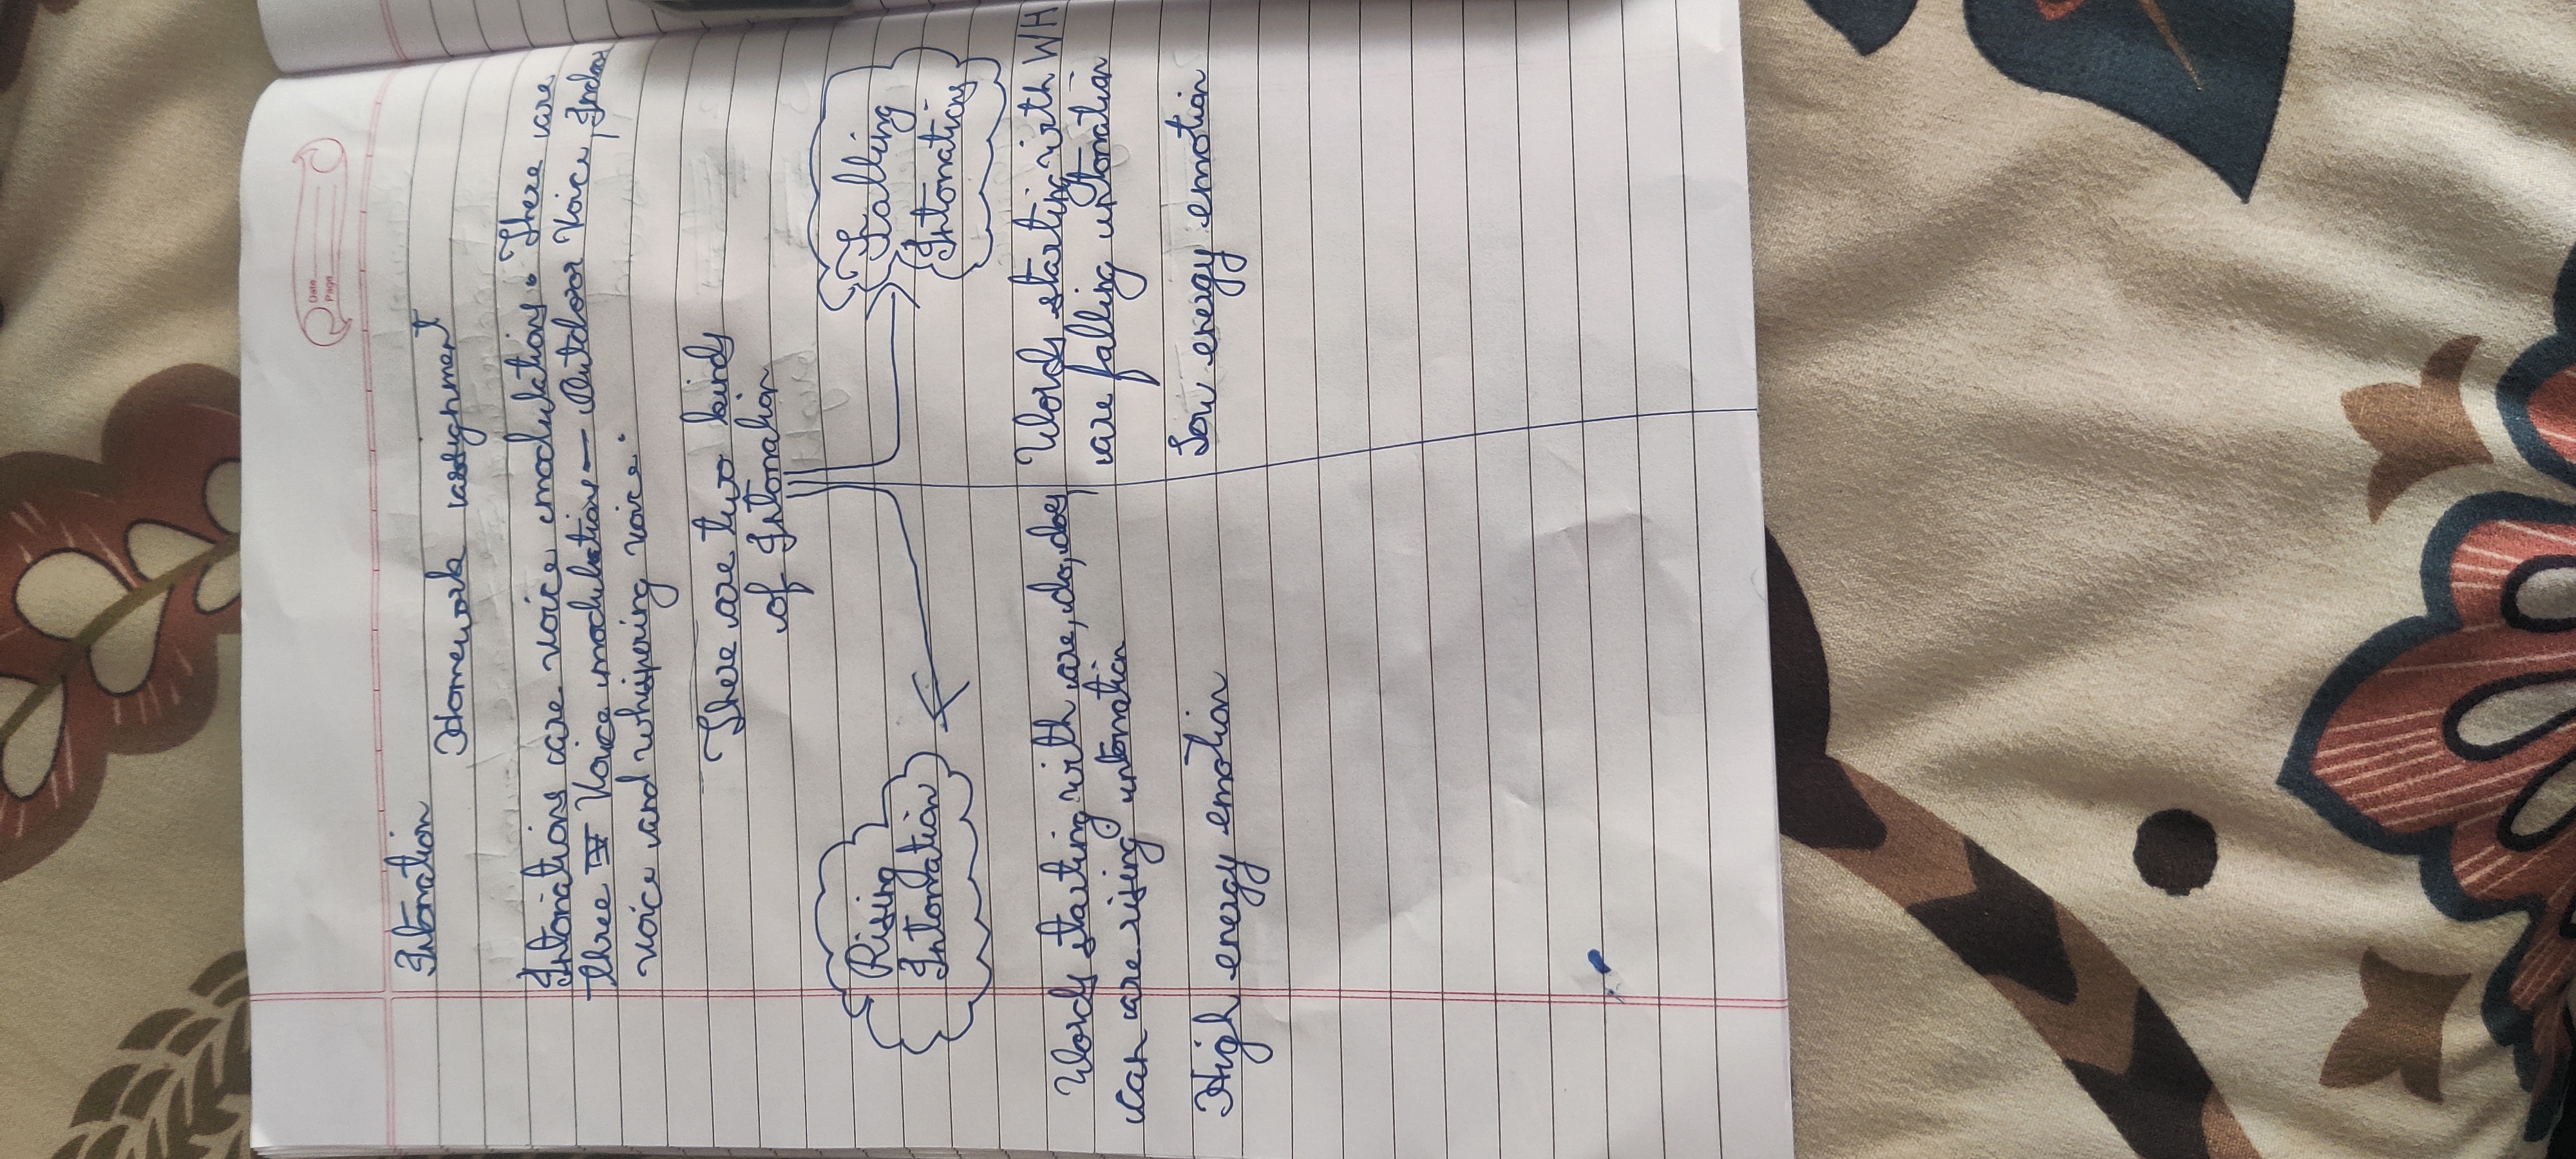 Date
Page
Intonation
Homework assignment
Intonations are voice modulations. There are
three Voice modulations — Outdoor Voice, Indoor
voice and whispering voice.
There are two kinds
of Intonation
Rising
Intonation
Falling
Intonations
Words starting with are, do, does,
can are rising intonation
High energy emotion
Words starting with WH
are falling intonation
Low energy emotion